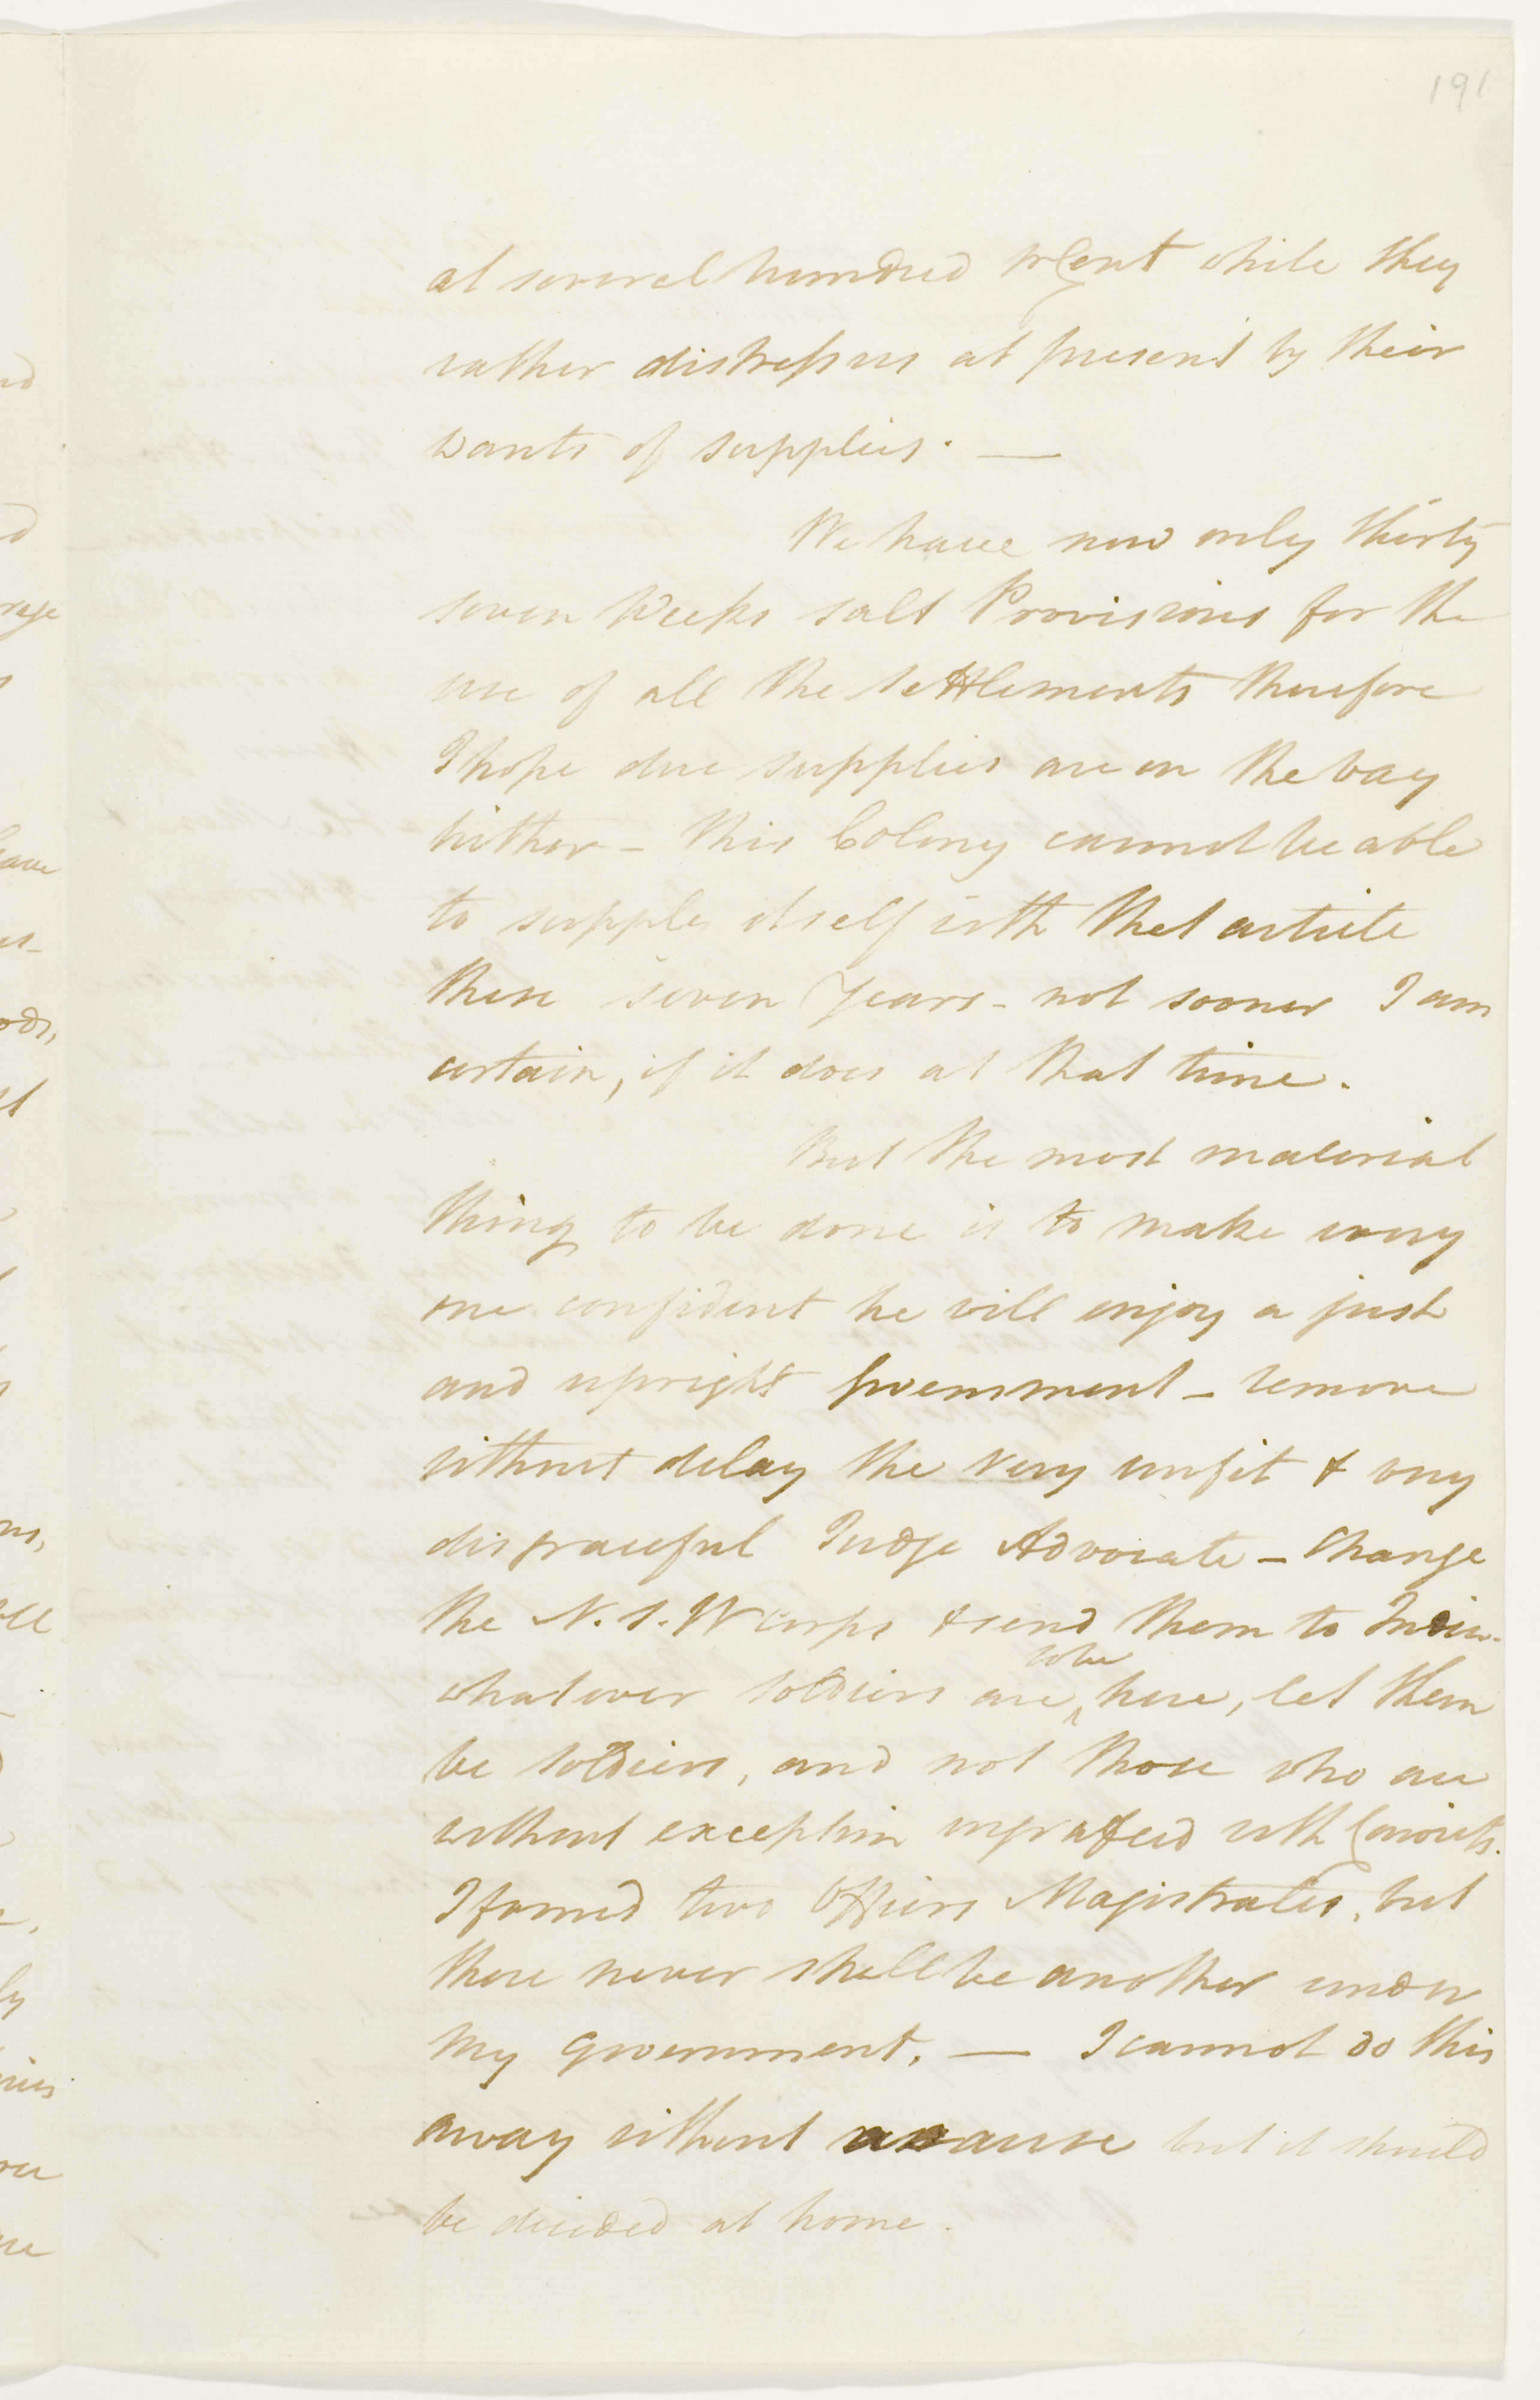 191
at several hundred pr Cent while they
rather distress us at present by their
wants of supplies. —
We have now only thirty
seven Weeks salt Provisions for the
use of all the settlements therefore
I hope due supplies are on the way
hither – this Colony cannot be able
to supply itself with that article
these seven Years – not sooner I am
certain, if it does at that time.
But the most material
thing to be done is to make every
one confident he will enjoy a just
and upright Government – remove
without delay the very unfit & very
disgraceful Judge Advocate – Change
the N. S. W Corps & send them to India –
to be
whatever soldiers are ^ here, let them
be soldiers, and not those who are
without exception ingrafted with Convicts.
I found two Officers Magistrates, but
there never shall be another under
my government. — I cannot do this
away without a cause but it should
be decided at home.